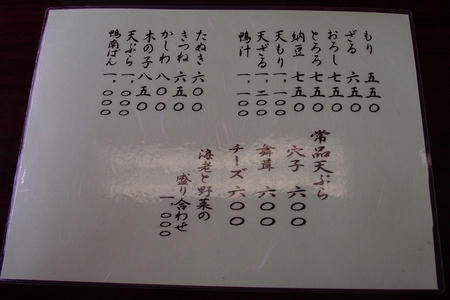 もり 五五〇
ざる 六五〇
おろし 七五〇
とろろ 七五〇
納豆 七五〇
天もり 一、一〇〇
天ざる 一、二〇〇
鴨汁 一、一〇〇
たぬき 六〇〇
きつね 六五〇
かしわ 八〇〇
木の子 八五〇
天ぷら 一、〇〇〇
鴨南ばん 一、〇〇〇
常品天ぷら
穴子 六〇〇
舞茸 六〇〇
チーズ 六〇〇
海老と野菜の
盛り合わせ
一、〇〇〇